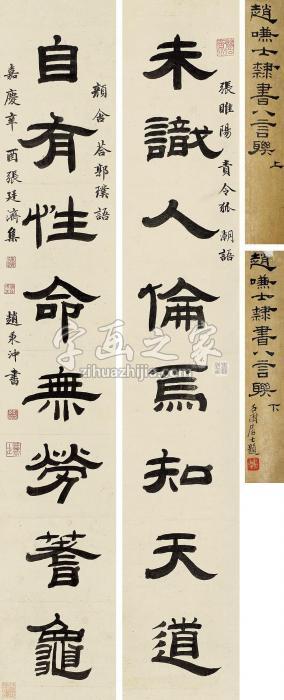 趙嗛士隸書八言聯 上
趙嗛士隸書八言聯 下
居士題
未識人倫焉知天道
張睢陽責令狐潮語
自有性命無勞蓍龜
顏含荅郭璞語
嘉慶辛酉張廷濟集
趙秉沖書
字画之家
zihuazhijia.com